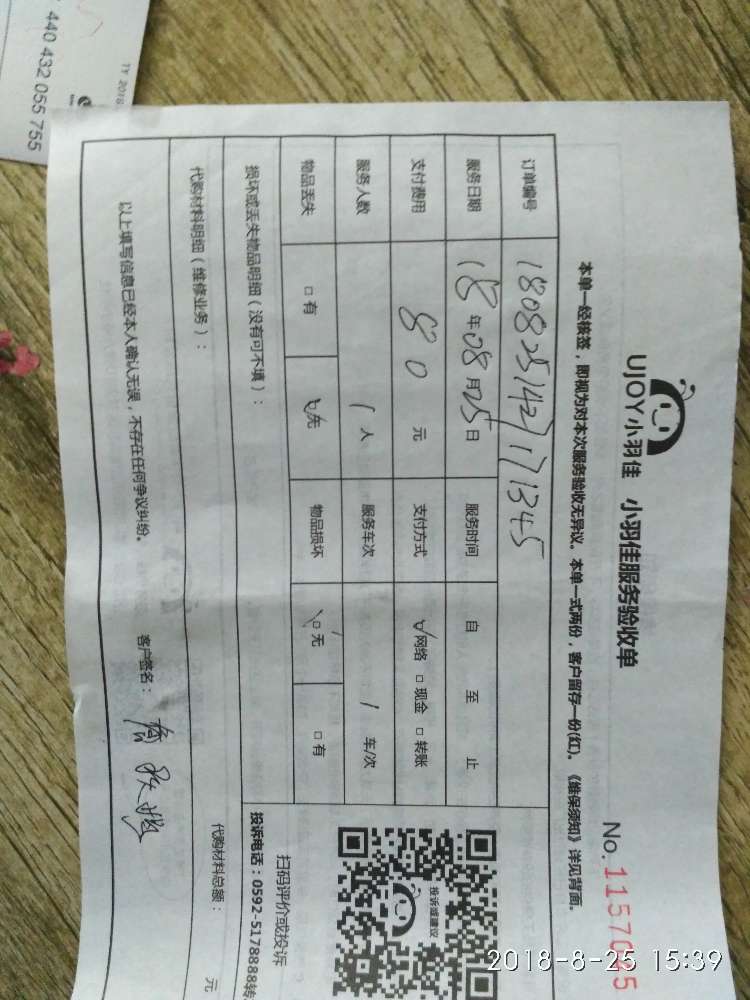 UJOY小羽佳 小羽佳服务验收单
本单一经核签，即视为对本次服务验收无异议。本单一式两份，客户留存一份(红)。《维保须知》详见背面。
订单编号 1808251427171345
服务日期 18年08月25日 服务时间 自 至 止
支付费用 80 元 支付方式 网络 □ 现金 □ 转账
服务人数 1 人 服务车次 1 车/次
物品丢失 □ 有 □ 无 物品损坏 □ 无 □ 有
损坏或丢失物品明细（没有可不填）：
代购材料明细（维修业务）：
代购材料总额： 元
以上填写信息已经本人确认无误，不存在任何争议纠纷。 客户签名：
投诉或建议
扫码评价或投诉
投诉电话：0592-5178888转
440 432 055 755
2018-8-25 15:39